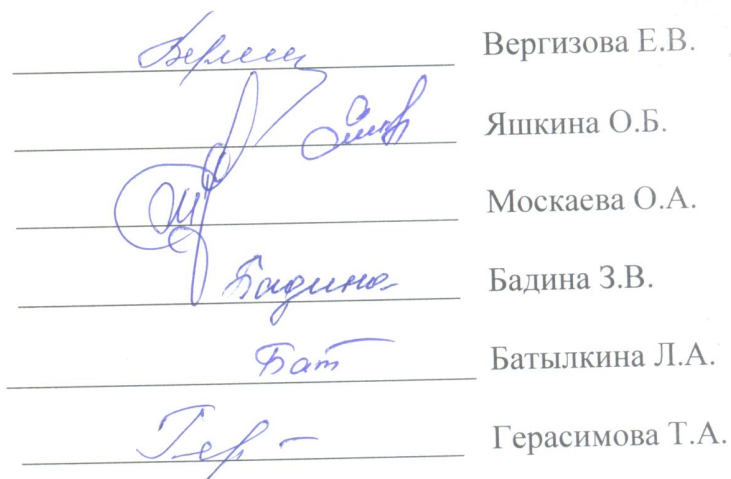 Вергизова Е.В.
Яшкина О.Б.
Москаева О.А.
Бадина Бадина З.В.
Бат Батылкина Л.А.
Гер Герасимова Т.А.